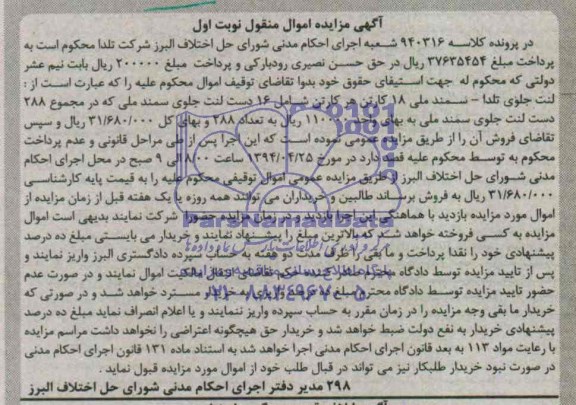 آگهی مزایده اموال منقول نوبت اول
در پرونده کلاسه ۹۴۰۳۱۶ شعبه اجرای احکام مدنی شورای حل اختلاف البرز شرکت تلدا محکوم است به
پرداخت مبلغ ۳۷۶۳۵۴۵۴ ریال در حق حسن نصیری رودبارکی و پرداخت مبلغ ۲۰۰۰۰۰۰ ریال بابت نیم عشر
دولتی که محکوم له جهت استیفای حقوق خود بدوا تقاضای توقیف اموال محکوم علیه را که عبارت است از :
لنت جلوی تلدا – سمند ملی ۱۸ کارتن هر کارتن شامل ۱۶ دست لنت جلوی سمند ملی که در مجموع ۲۸۸
دست لنت جلوی سمند ملی به بهای واحد ۱۱۰۰۰۰ ریال به تعداد ۲۸۸ و بهای کل ۳۱/۶۸۰/۰۰۰ ریال و سپس
تقاضای فروش آن را از طریق مزایده عمومی نموده است که این اجرا پس از طی مراحل قانونی و عدم پرداخت
محکوم به توسط محکوم علیه قصد دارد در مورخ ۱۳۹۴/۰۴/۲۵ ساعت ۸/۰۰ الی ۹ صبح در محل اجرای احکام
مدنی شورای حل اختلاف البرز از طریق مزایده عمومی اموال توقیفی محکوم علیه را به قیمت پایه کارشناسی
۳۱/۶۸۰/۰۰۰ ریال به فروش برساند طالبین و خریداران می توانند همه روزه یا یک هفته قبل از زمان مزایده از
اموال مورد مزایده بازدید با هماهنگی این اجرا بازدید و در زمان مزایده حضورا شرکت نمایند بدیهی است اموال
مزایده به کسی فروخته خواهد شد که بالاترین مبلغ را پیشنهاد نمایند و خریدار می بایستی مبلغ ده درصد
پیشنهادی خود را نقدا پرداخت و ما بقی را ظرف مدت دو هفته به حساب سپرده دادگستری البرز واریز نمایند و
پس از تایید مزایده توسط دادگاه محترم صادر کننده حکم تقاضای انتقال مالکیت اموال نمایند و در صورت عدم
حضور تایید مزایده توسط دادگاه محترم مبلغ به خریدار مسترد خواهد شد و در صورتی که
خریدار ما بقی وجه مزایده را در زمان مقرر به حساب سپرده واریز ننمایند و یا اعلام انصراف نماید مبلغ ده درصد
پیشنهادی خریدار به نفع دولت ضبط خواهد شد و خریدار حق هیچگونه اعتراضی را نخواهد داشت مراسم مزایده
با رعایت مواد ۱۱۳ به بعد قانون اجرای احکام مدنی اجرا خواهد شد به استناد ماده ۱۳۱ قانون اجرای احکام مدنی
در صورت نبود خریدار طلبکار نیز می تواند در قبال طلب خود از اموال مورد مزایده قبول نماید .
۲۹۸ مدیر دفتر اجرای احکام مدنی شورای حل اختلاف البرز
ParsNamadData
۰۲۱-۸۸۳۴۹۶۷۰-۵